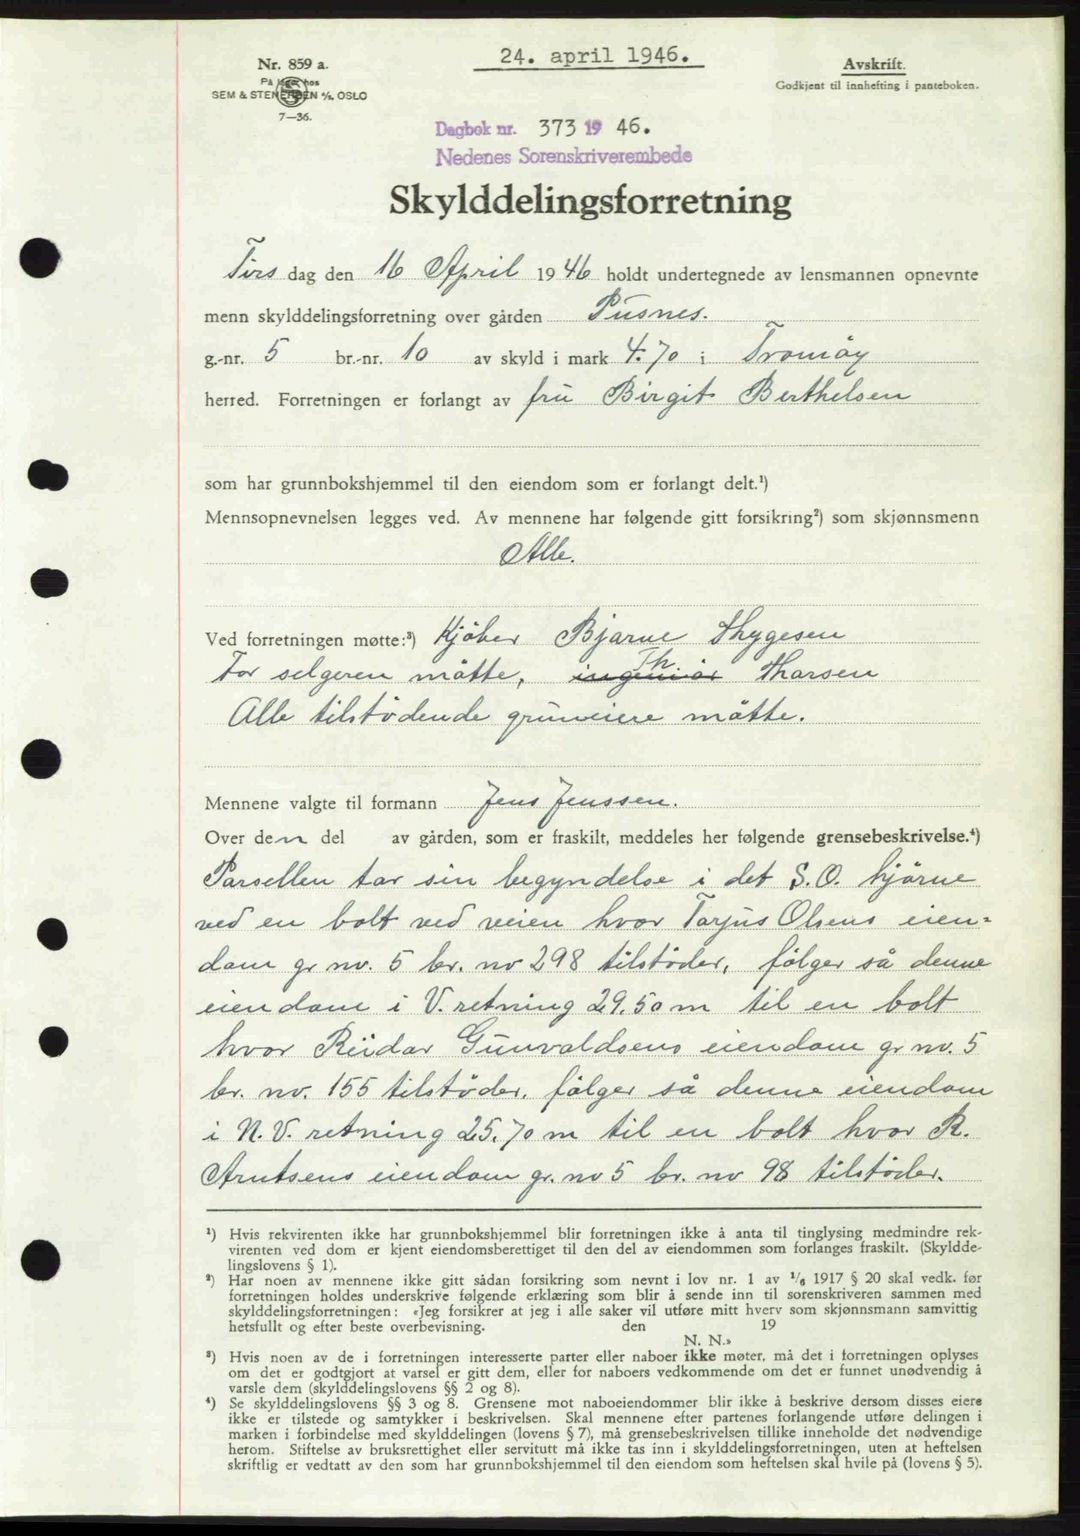 Nr. 859 a.
På lager hos
SEM & STENERSEN A/S, OSLO
7—36.
24. april 1946.
Avskrift.
Godkjent til innhefting i panteboken.
Dagbok nr. 373 19 46.
Nedenes Sorenskriverembede
Skylddelingsforretning
Tirs dag den 16 April 1946 holdt undertegnede av lensmannen opnevnte
menn skylddelingsforretning over gården Pusnes.
g.-nr. 5 br.-nr. 10 av skyld i mark 4.70 i Tromøy
herred. Forretningen er forlangt av fru Birgit Berthelsen
som har grunnbokshjemmel til den eiendom som er forlangt delt.¹)
Mennsopnevnelsen legges ved. Av mennene har følgende gitt forsikring²) som skjønnsmenn
Alle.
Ved forretningen møtte:³) Kjøber Bjarne Thygesen
For selgeren møtte, ingeniør Th. Tharsen
Alle tilstødende gruneiere møtte.
Mennene valgte til formann Jens Jenssen.
Over den del av gården, som er fraskilt, meddeles her følgende grensebeskrivelse.⁴)
Parsellen tar sin begyndelse i det S.O. hjørne
ved en bolt ved veien hvor Tarjus Olsens eien=
dom gr nr. 5 br. nr 298 tilstøder, følger så denne
eiendom i V. retning 29.50 m til en bolt
hvor Reidar Gunvaldsens eiendom gr nr. 5
br. nr. 155 tilstøder, følger så denne eiendom
i N.V. retning 25.70 m til en bolt hvor R.
Arntsens eiendom gr. nr 5 br. nr 98 tilstøder.
¹) Hvis rekvirenten ikke har grunnbokshjemmel blir forretningen ikke å anta til tinglysing medmindre rek-
virenten ved dom er kjent eiendomsberettiget til den del av eiendommen som forlanges fraskilt. (Skyldde-
lingslovens § 1).
²) Har noen av mennene ikke gitt sådan forsikring som nevnt i lov nr. 1 av 1/6 1917 § 20 skal vedk. før
forretningen holdes underskrive følgende erklæring som blir å sende inn til sorenskriveren sammen med
skylddelingsforretningen: «Jeg forsikrer at jeg i alle saker vil utføre mitt hverv som skjønnsmann samvittig
hetsfullt og efter beste overbevisning. den 19
N. N.»
³) Hvis noen av de i forretningen interesserte parter eller naboer ikke møter, må det i forretningen oplyses
om det er godtgjort at varsel er gitt dem, eller for naboers vedkommende om det er funnet unødvendig å
varsle dem (skylddelingslovens §§ 2 og 8).
⁴) Se skylddelingslovens §§ 3 og 8. Grensene mot naboeiendommer blir ikke å beskrive dersom disses eiere
ikke er tilstede og samtykker i beskrivelsen. Skal mennene efter partenes forlangende utføre delingen i
marken i forbindelse med skylddelingen (lovens § 7), må grensebeskrivelsen tillike inneholde det nødvendige
herom. Stiftelse av bruksrettighet eller servitutt må ikke tas inn i skylddelingsforretningen, uten at heftelsen
skriftlig er vedtatt av den som har grunnbokshjemmel til den eiendom som heftelsen skal hvile på (lovens § 5).